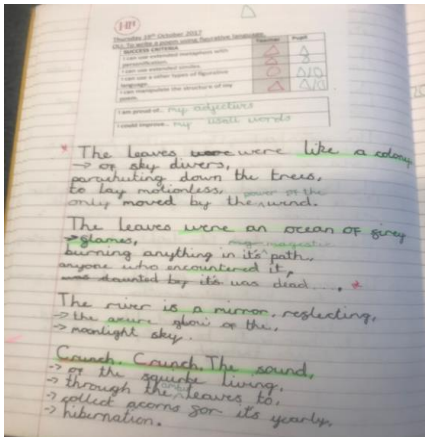 HM
Thursday 19th October 2017
OLI: To write a poem using figurative language.
SUCCESS CRITERIA Teacher Pupil
I can use extended metaphors with
personification.
I can use extended similes.
I can use a other types of figurative
language.
I can manipulate the structure of my
poem.
I am proud of... my adjectives
I could improve... my words
The leaves were were like a colony
→ of sky divers,
parachuting down the trees,
to lay motionless, power of the
only moved by the wind.
The leaves were an ocean of firey
→ flames,
magestic
burning anything in it's path,
anyone who encountered it,
daunted by it's was dead....
The river is a mirror, reflecting,
→ the azure glow of the,
→ moonlight sky.
Crunch. Crunch. The sound,
→ of the squirle living,
→ through the leaves to,
→ collect acorns for it's yearly,
→ hibernation.